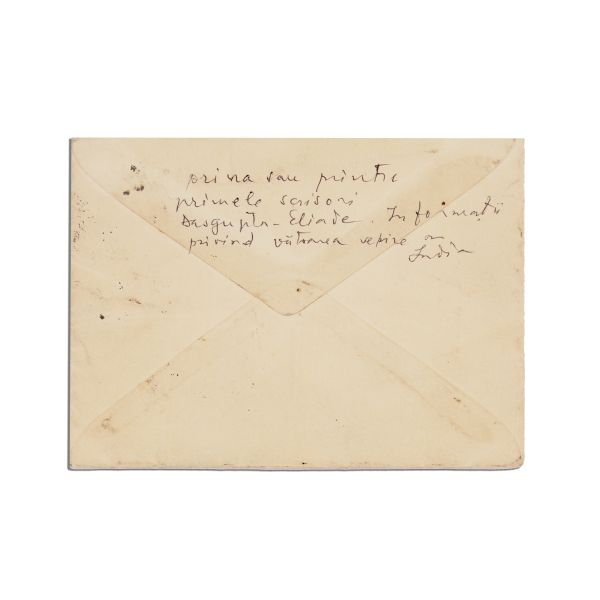 prima sau printre
primele scrisori
Dasgupta - Eliade. Informații
privind viitoarea ședere în
India